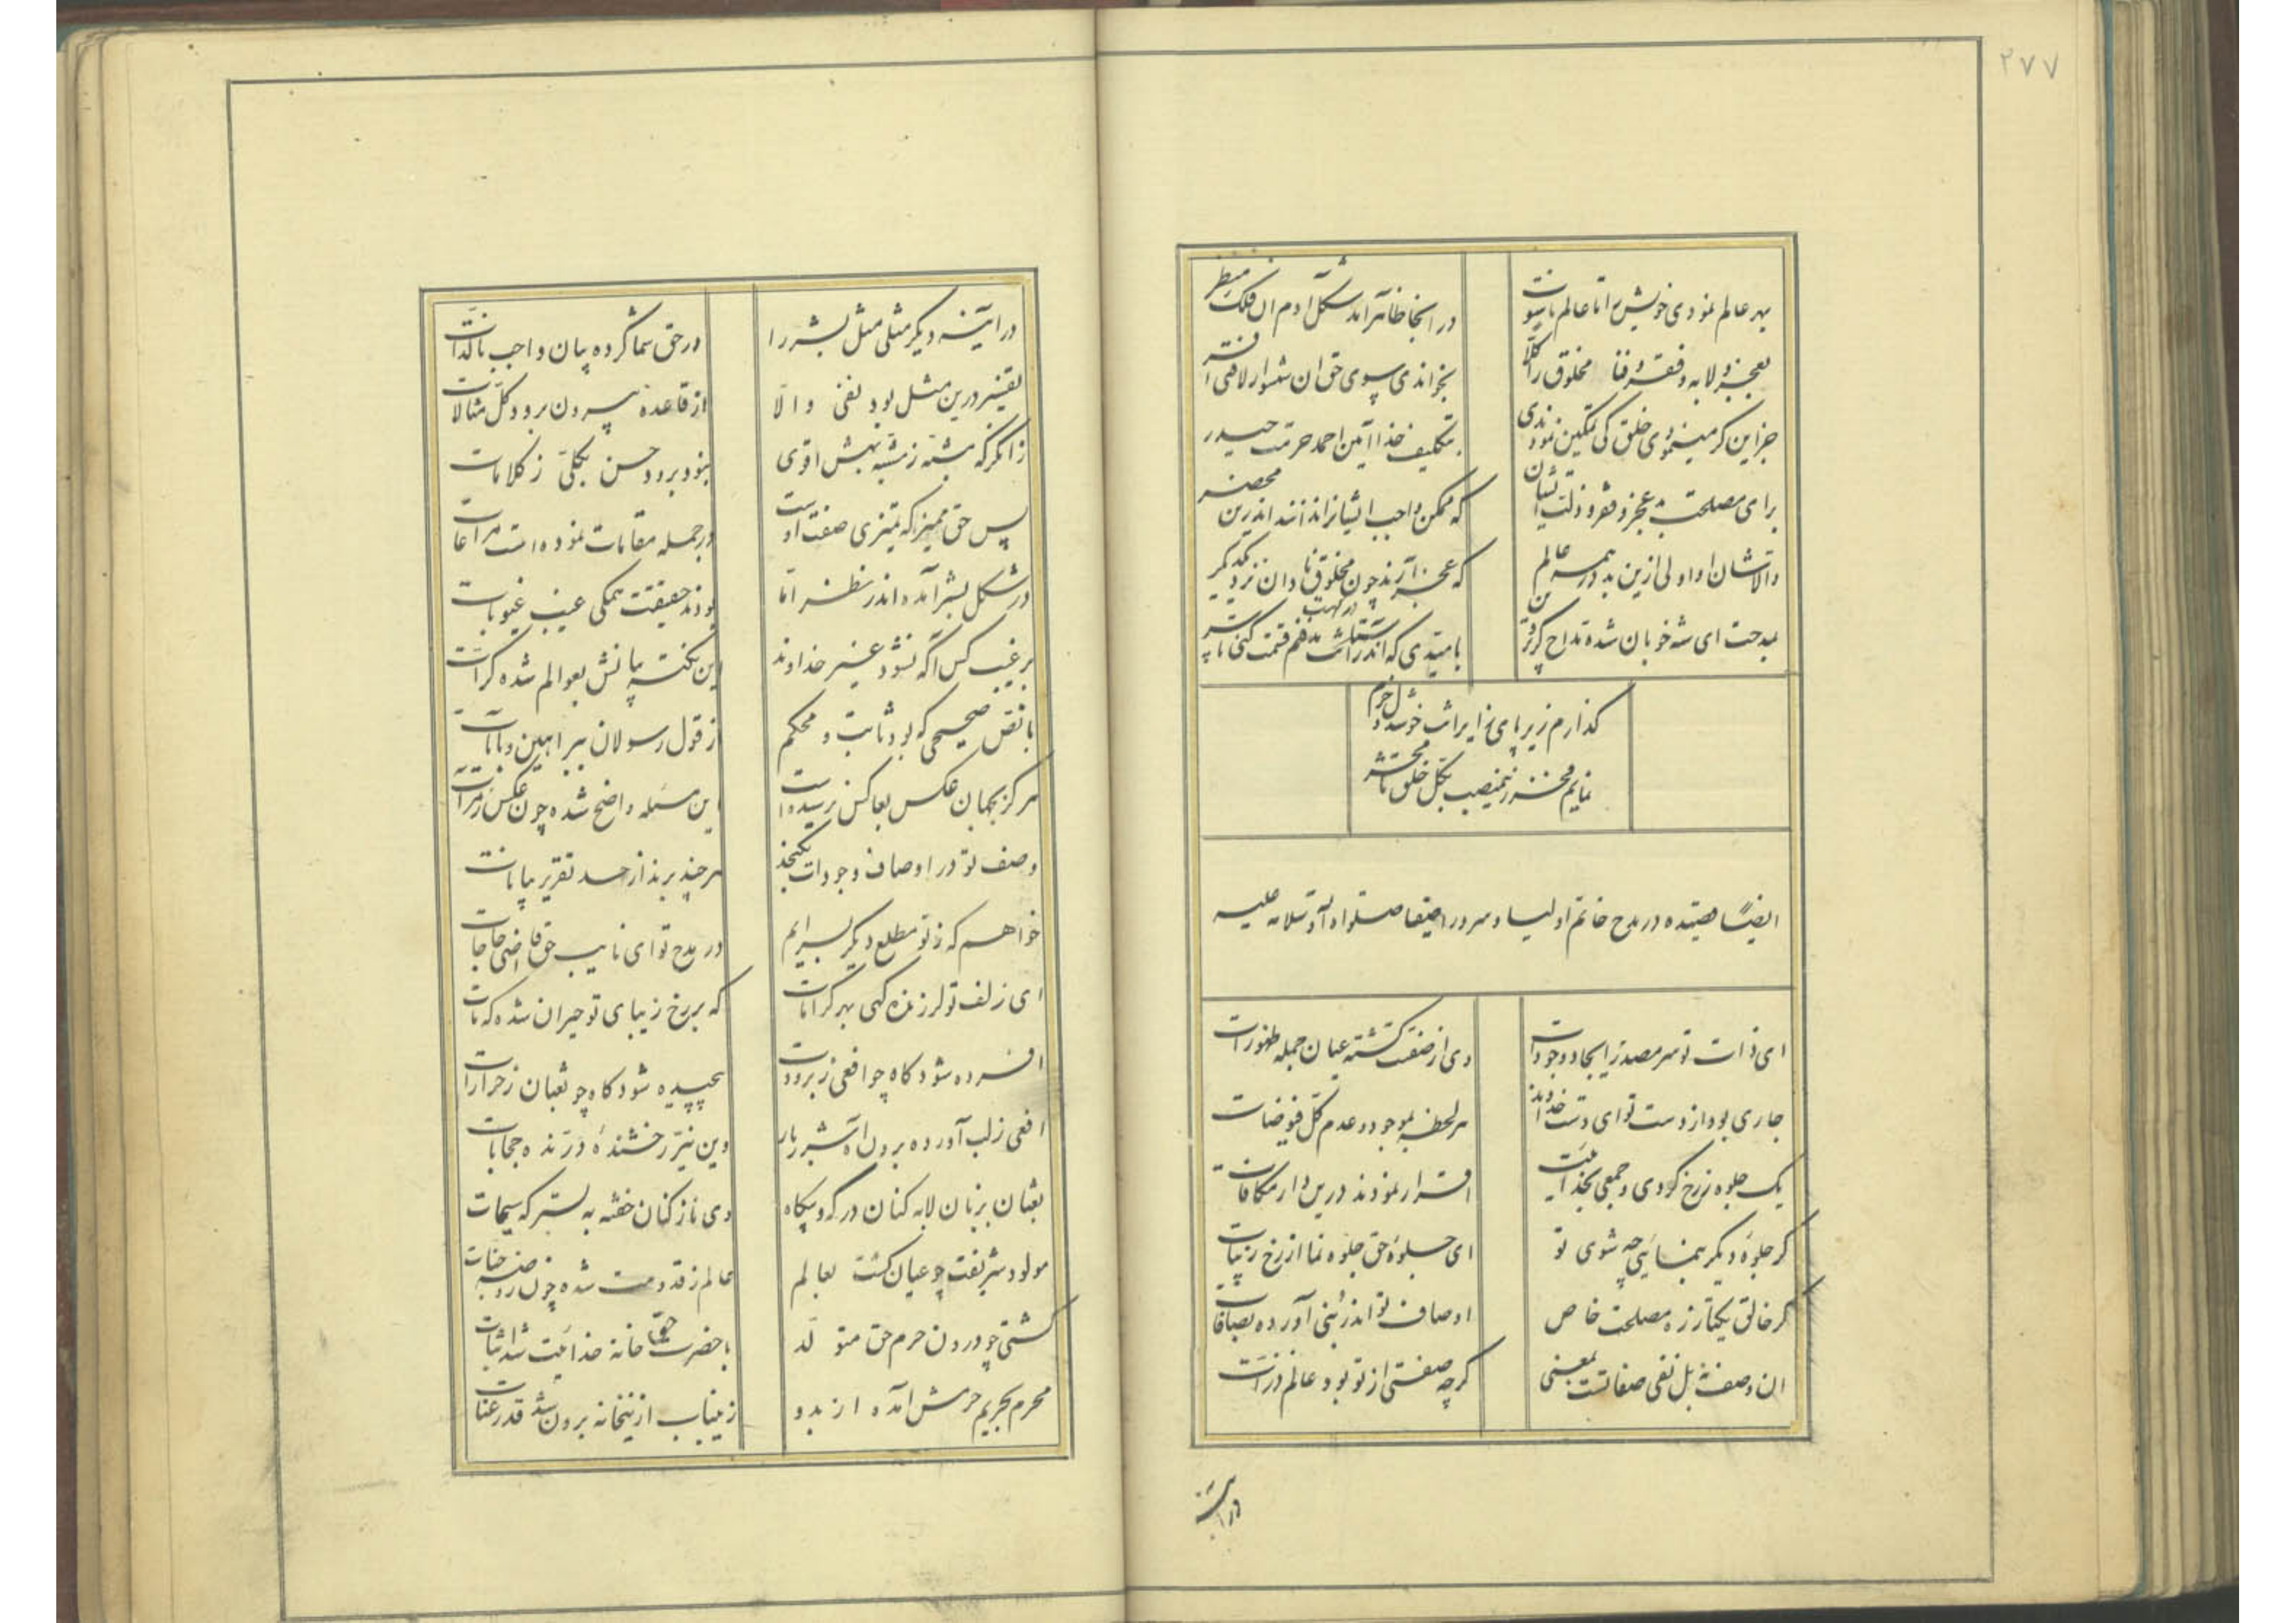 ۲۷۷
بهر عالم نمودی خویش را تا عالم ناسوت
در انجا ظاهر آمد شکل آدم ان فلک منظر
بعجز و لابه و فقر و فنا مخلوق را کلاً
بخواندی سوی حق ان شهسوار لافتی افسر
جز این گر مینمودی خلق کی تمکین نمودندی
بتکلیف خدا آیین احمد حرمت حیدر
برای مصلحت بد عجز و فقر و ذلت ایشان
که ممکن واجب ایشانرا ندانند اندرین محضر
والا شان او اولی ازین بد در همه عالم
که عجز آرند چون مخلوق نادان نزد یکدیگر
بمدحت ای شه خوبان شده مداح کز
بامیدی که اندر
گذارم زیر پای زایرانت خوشدل و خرم
نمایم فخر زینمنصب بکل خلق تا محشر
ایضاً قصیده در مدح خاتم اولیا و سرور اصفیا صلوات الله و سلامه علیه
ای ذات تو سر مصدر ایجاد وجودات
وی از صفتت گشته عیان جمله ظهورات
جاری بود از دست تو ای دست خداوند
هر لحظه بموجود و عدم کل فیوضات
یک جلوه ز رخ کردی و جمعی بخدائیت
اقرار نمودند درین دار مکافات
گر جلوه دیگر بنمائی چه شوی تو
ای جلوه حق جلوه نما از رخ زیبات
گر خالق یکتا ز ره مصلحت خاص
اوصاف تو اندر نبی آورده بصافات
ان وصف نه بل نفی صفاتست بمعنی
گرچه صفتی از تو بود عالم ذرات
در آینه
در آینه دیگر مثلی مثل بشر را
در حق شما کرده بیان واجب بالذات
تغییر درین مثل بود نفی و الا
از قاعده بیرون برود کل مثالات
زانگر که مشبه ز مشبه بهش اقوی
نبود برود حسن بکلی ز کلامات
پس حق ممیز که تمیزی صفت اوست
در جمله مقامات نموده است مراعات
در شکل بشر آمده اندر نظر اما
بودند حقیقت همگی عیب غیوبات
بر غیب کس آگه نشود غیر خداوند
این نکته بیانش بعوالم شده کرات
با نص صحیحی که بود ثابت و محکم
از قول رسولان ببراهین و بآیات
هرگز بجهان عکس بعاکس نرسیده است
این مسئله واضح شده چون عکس ز مرآت
وصف تو در اوصاف وجودات نگنجد
هر چند برند از حد تقریر بیانات
خواهم که ز نو مطلع دیگر بسرایم
در مدح تو ای نایب حق قاضی حاجات
ای زلف تو لرزنده گهی بهر کرامات
که بر رخ زیبای تو حیران شده که مات
افسرده شود گاه چو افعی ز برودت
پیچیده شود گاه چو ثعبان ز حرارات
افعی ز لب آورده برون آتش شرر بار
وین نیر رخشنده درنده حجابات
ثعبان بزبان لابه کنان در گه و بیگاه
وی ناز کنان خفته به بستر که سیحات
مولود شریفت چو عیان گشت بعالم
عالم ز قدومت شده چون روضه جنات
گشتی چو درون حرم حق متولد
با حضرت حق خانه خدائیت شد اثبات
محرم بحریم حرمش آمده از بدو
زینباب ازینخانه برون شد قدر عنات